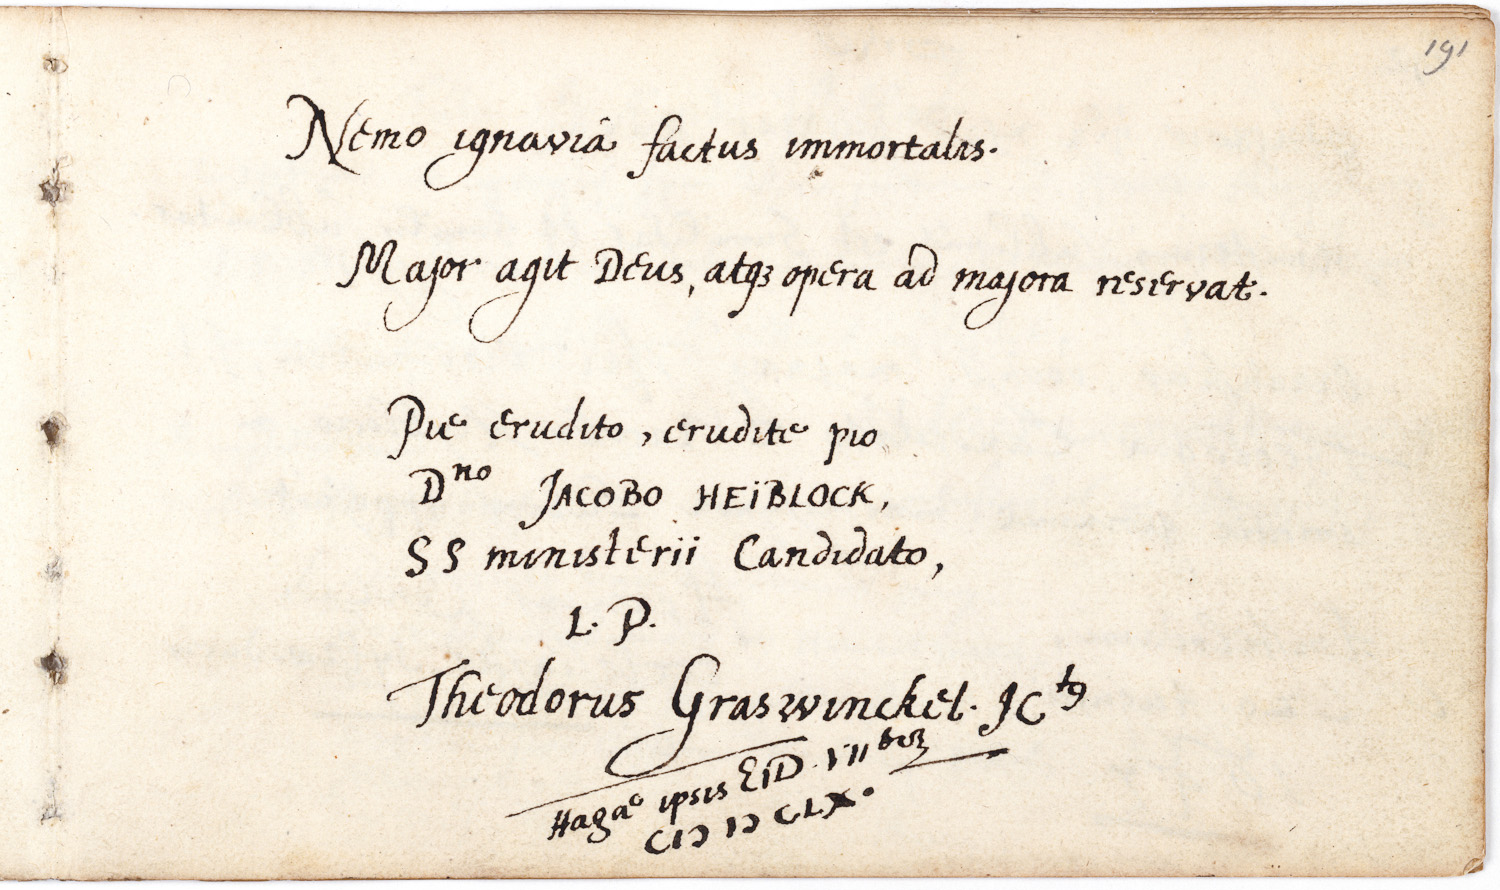 191
Nemo ignaviâ factus immortalis.
Major agit Deus, atqȝ opera ad majora reservat.
Pie erudito, erudite pio
Dno JACOBO HEiBLOCK,
SS ministerii Candidato,
L. P.
Theodorus Graswinckel. JCtꝰ
Hagae ipsis EiD. VIIbrȝ
CIƆ IƆ CLX.